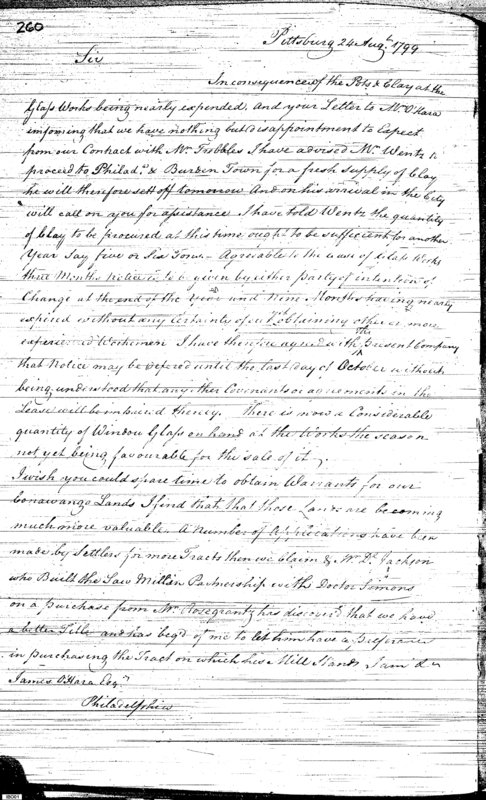 260
Pittsburg 24 Augt. 1799
Sir
In consequence of the Pots & Clay at the
Glass Works being nearly expended, and your Letter to Mr. O'Hara
informing that we have nothing but disappointment to Expect
from our Contract with Mr. Trebbles I have advised Mr. Wentz to
proceed to Philada. & Burden Town for a fresh supply of Clay
he will therefore sett off tomorrow And on his arrival in the City
will call on you for assistance. I have told Wentz the quantity
of Clay to be procured at this time ought to be sufficient for another
Year Say five or Six Tons — Agreeable to the Lease of Glass Works
three Months Notice is to be given by either party of intention of
Change at the end of the Year and Nine Months having nearly
expired without any certainty of our obtaining other or more
experienced Workmen I have therefore agreed with the present Company
that Notice may be defered until the last day of October without
being understood that any other Covenants or agreements in the
Lease will be impaired thereby. There is now a Considerable
quantity of Window Glass on hand at the Works the season
not yet being favourable for the sale of it.
I wish you could spare time to obtain Warrants for our
Conawango Lands I find that that those Lands are becoming
much more valuable. A number of Applications have been
made by Settlers for more Tracts then we Claim & Wm. D. Jackson
who Built the Saw Mill in Partnership with Doctor Simons
on a purchase from Mr. Rosegrantz has discoverd. that we have
a better Title and has beg'd of me to let him have a preference
in purchasing the Tract on which his Mill Stands I am &c
James O'Hara Esqr.
Philadelphia